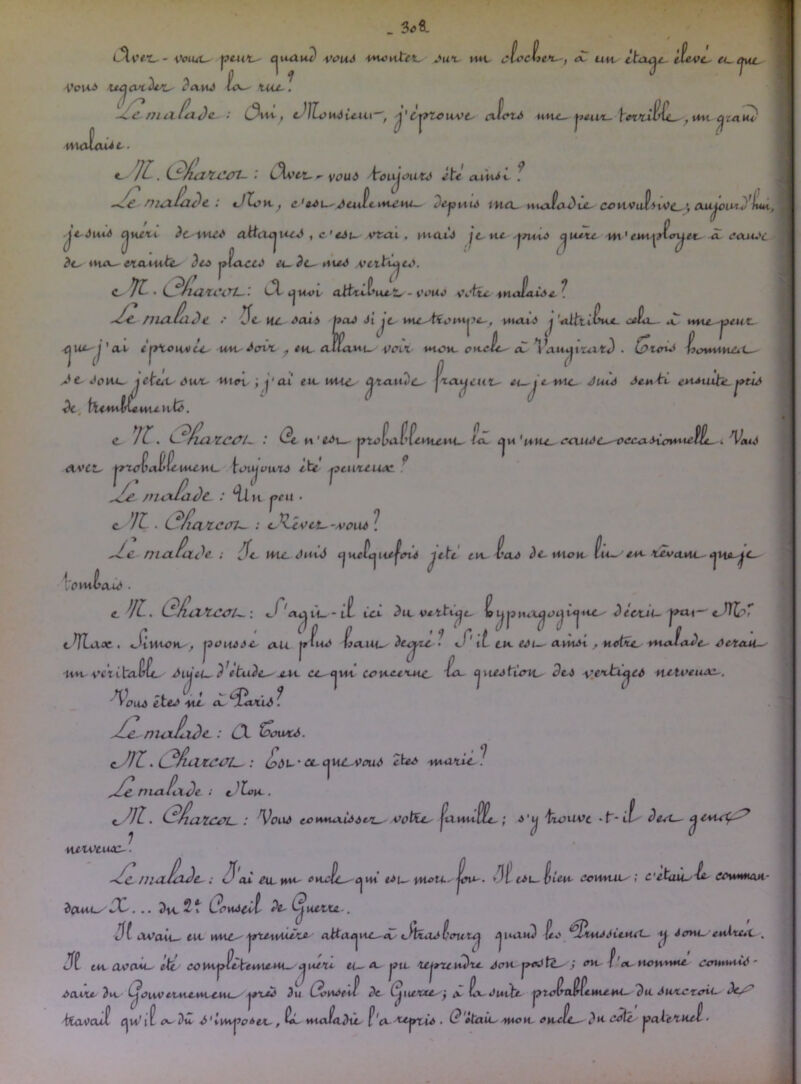 308.
Avez-vous peur quand vous montez sur un clocher, à un étage élevé et que
vous regardez dans la rue ?
Le malade : Oui, Monsieur, j'éprouve alors une peur terrible, un grand
malaise.
M. Charcot : Avez-vous toujours été ainsi ?
Le malade : Non, c'est seulement depuis ma maladie convulsive ; aujourd'hui,
je suis guéri de mes attaques, c'est vrai, mais je ne puis guère m'employer à cause
de ma crainte des places et de mes vertiges.
M. Charcot : A quoi attribuez-vous votre malaise ?
Le malade : Je ne sais pas si je me trompe, mais j'attribue cela à une peur
que j'ai éprouvée un soir, en allant voir mon oncle à Vaugirard. Trois hommes
se sont jetés sur moi ; j'ai eu une grande frayeur et je me suis senti ensuite pris
de tremblements.
M. Charcot : Ce n'est probablement là qu'une cause occasionnelle. Vous
avez probablement toujours été peureux ?
Le malade : Un peu.
M. Charcot : Rêvez-vous ?
Le malade : Je me suis quelquefois jeté en bas de mon lit en rêvant que je
tombais.
M. Charcot : S'agit-il ici du vertige hypnagogique décrit par M.
Max. Simon, poussé au plus haut degré ? S'il en est ainsi, notre malade serait
un véritable sujet d'étude en ce qui concerne la question des vertiges nerveux.
Vous êtes né à Paris ?
Le malade : A Tours.
M. Charcot : Est-ce que vous êtes marié ?
Le malade : Non.
M. Charcot : Vous connaissez votre famille ; s'y trouve-t-il des gens
nerveux ?
Le malade : J'ai eu un oncle qui est mort fou. Il est bien connu ; c'était le comman-
dant X... du 2e Conseil de Guerre.
Il avait eu une première attaque à Strasbourg quand les Prussiens y sont entrés.
Il en avait été complètement guéri et a pu reprendre son poste ; on l'a nommé commis-
saire du Gouvernement près du Conseil de Guerre ; à la suite probablement du surcroît de
travail qu'il a dû s'imposer, la maladie l'a repris. C'était mon oncle du côté paternel.